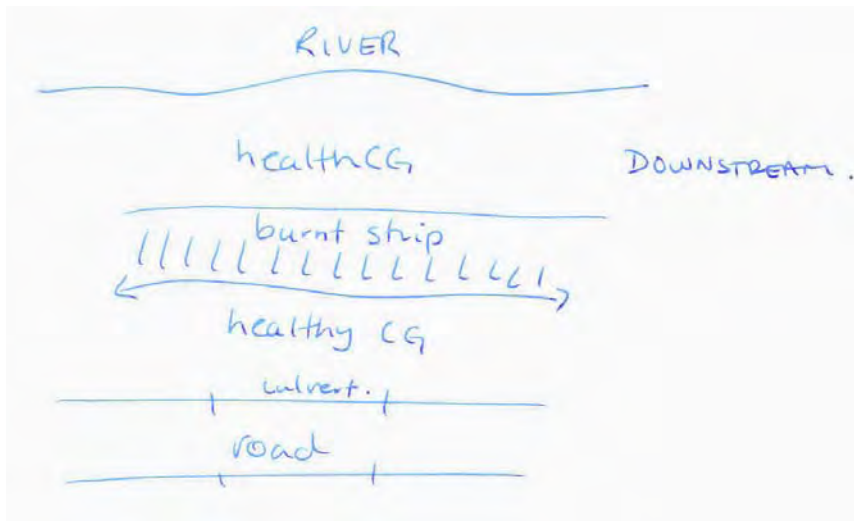 RIVER
healthCG
DOWNSTREAM.
burnt strip
healthy CG
culvert.
road